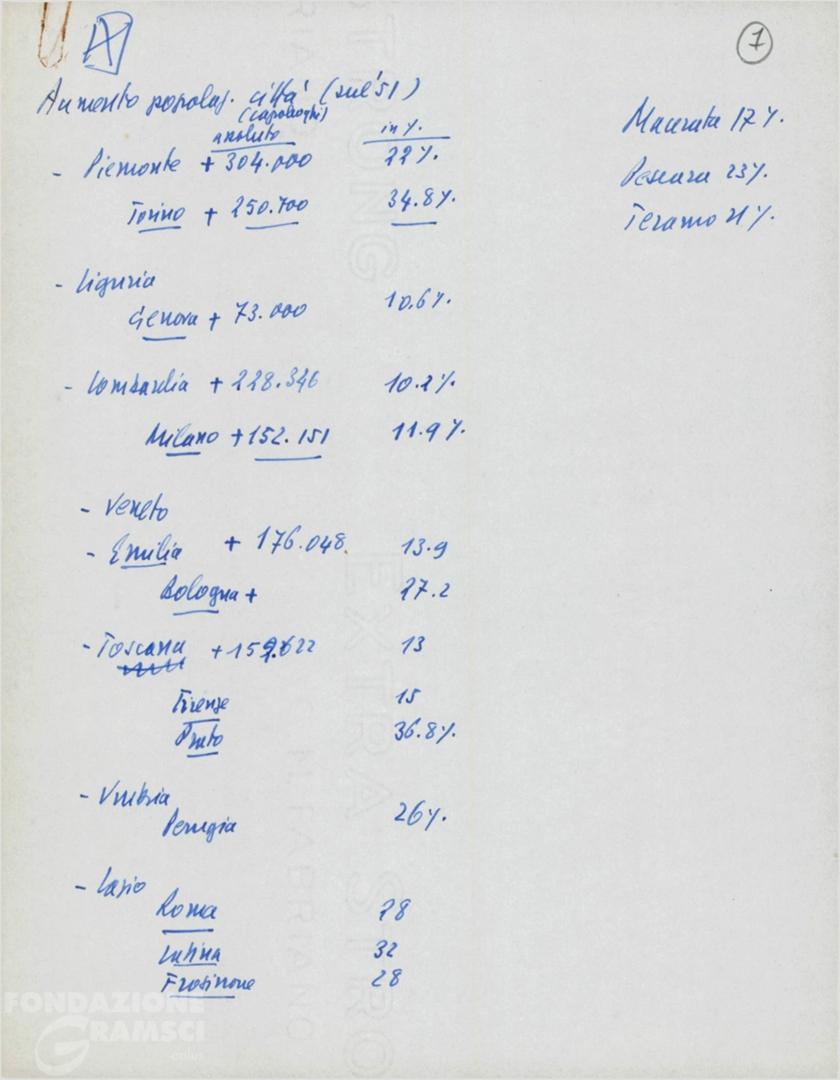 A
1
Aumento popolaz. città (sul '51)
(capoluoghi)
assoluto in %.
- Piemonte + 304.000 22%.
Torino + 250.700 34.8%.
- Liguria
Genova + 73.000 10.6%.
- Lombardia + 228.346 10.2%.
Milano + 152.151 11.9%.
- Veneto
- Emilia + 176.048 13.9
Bologna + 27.2
- Toscana + 159.622 13
Firenze 15
Prato 36.8%.
- Umbria
Perugia 26%.
- Lazio
Roma 28
Latina 32
Frosinone 28
Macerata 17%.
Pescara 23%.
Teramo 21%.
FONDAZIONE
GRAMSCI
onlus